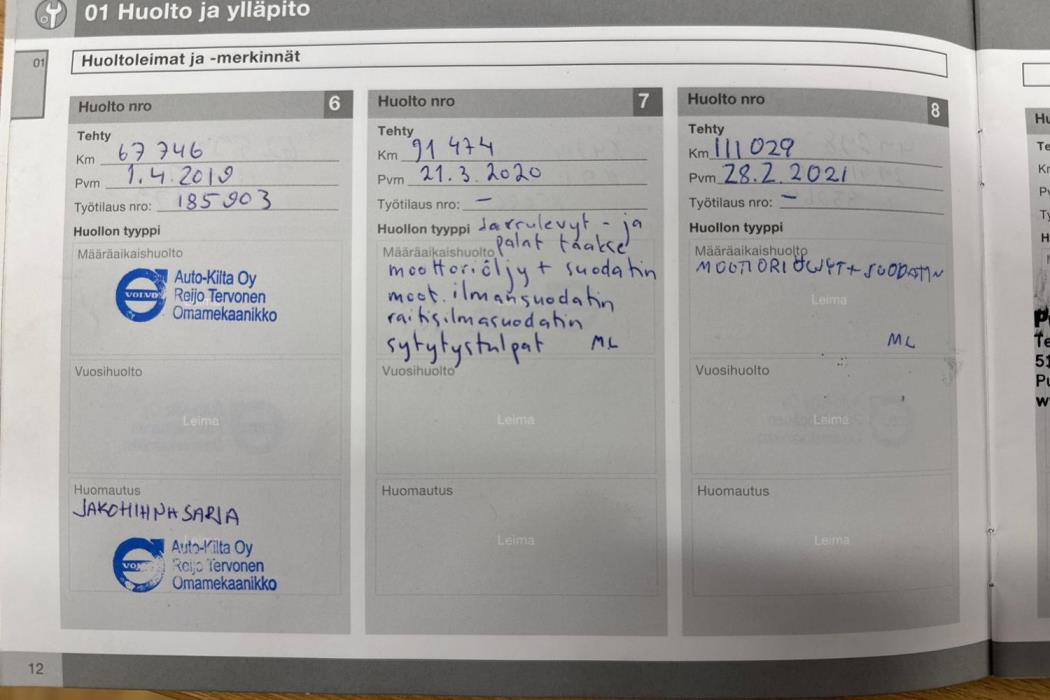 01 Huolto ja ylläpito
01
Huoltoleimat ja -merkinnät
Huolto nro 6
Tehty
Km 67 746
Pvm 1.4.2019
Työtilaus nro: 185903
Huollon tyyppi
Määräaikaishuolto
VOLVO
Auto-Kilta Oy
Reijo Tervonen
Omamekaanikko
Vuosihuolto
Leima
Huomautus
JAKOHIHNASARJA
VOLVO
Auto-Kilta Oy
Reijo Tervonen
Omamekaanikko
Huolto nro 7
Tehty
Km 91 474
Pvm 21.3.2020
Työtilaus nro: –
Huollon tyyppi Jarrulevyt - ja
palat taakse
Määräaikaishuolto
moottoriöljy + suodatin
moot. ilmansuodatin
raitisilmasuodatin
sytytystulpat ML
Vuosihuolto
Leima
Huomautus
Leima
Huolto nro 8
Tehty
Km 111 029
Pvm 28.2.2021
Työtilaus nro: –
Huollon tyyppi
Määräaikaishuolto
MOOTTORIÖLJYT + SUODATIN
Leima
ML
Vuosihuolto
Leima
Huomautus
Leima
12